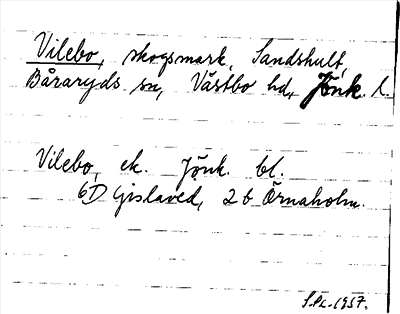 Vilebo, skogsmark, Sandshult,
Båraryds sn, Västbo hd, Jönk. l.
Vilebo, ek. Jönk. bl.
6D Gislaved, 2 b Örnaholm.
1957.